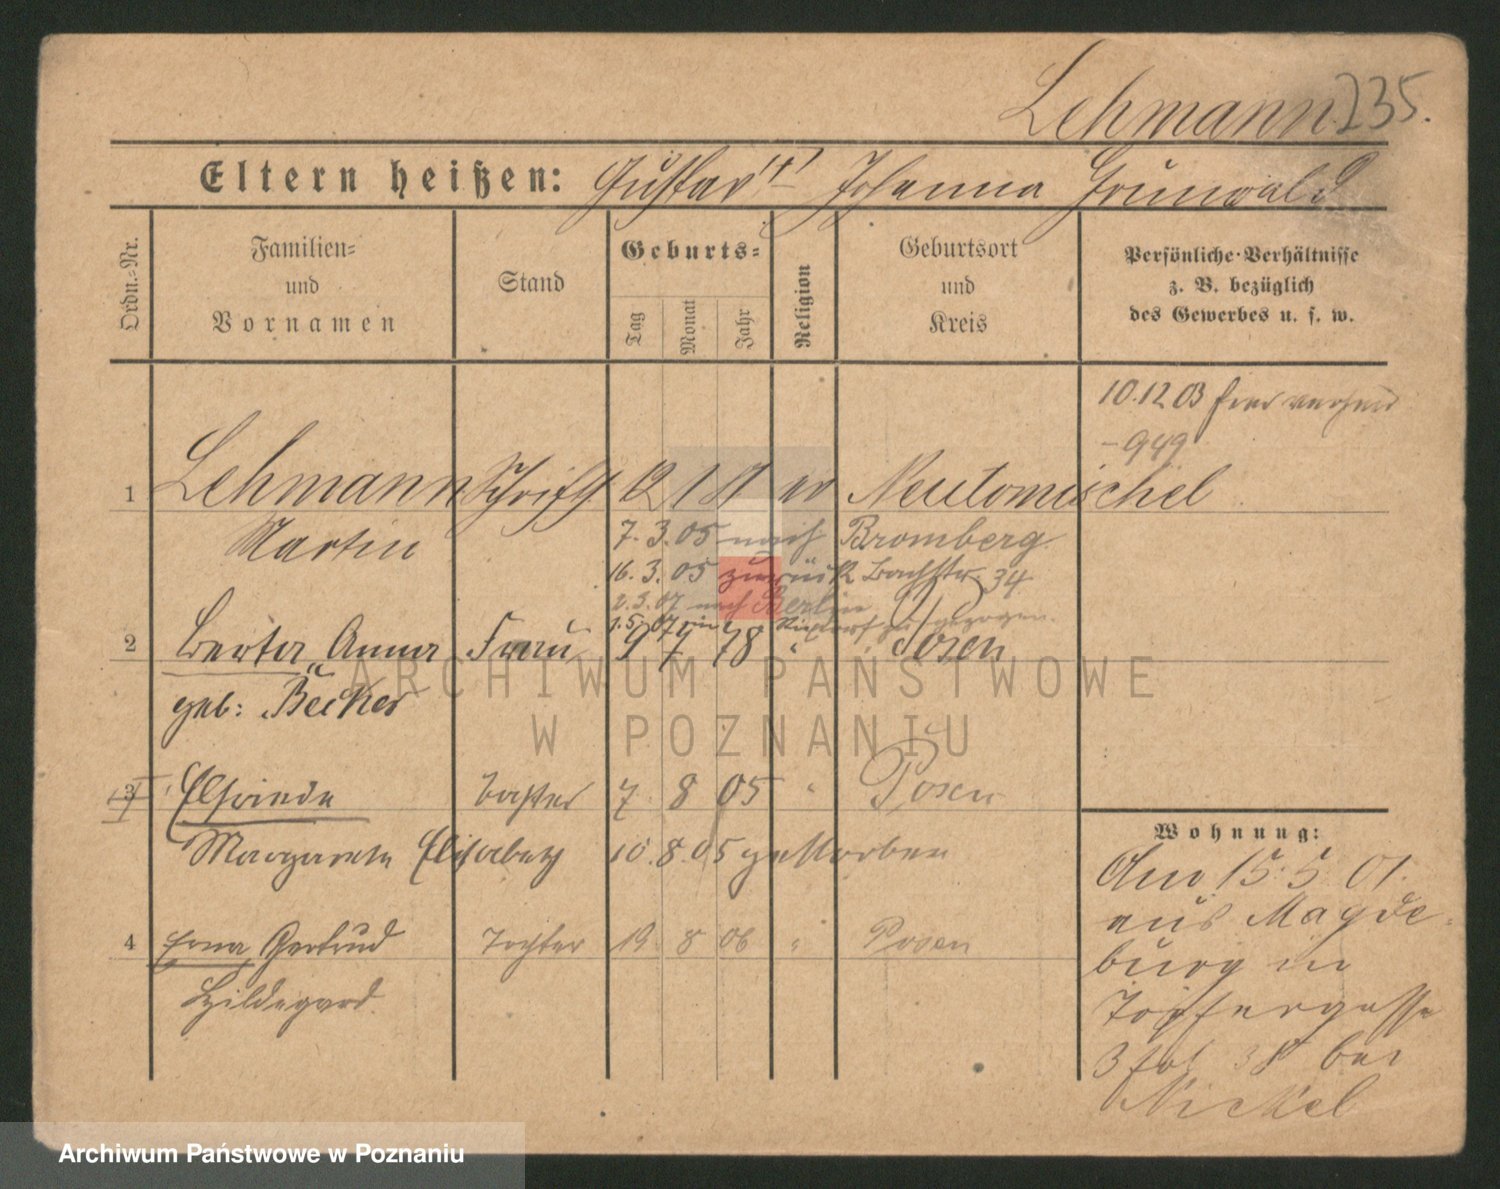 Lehmann 235.
Eltern heißen: Gustav "†" Johanna Grunwald
Ordn.-Nr.
Familien-
und
Vornamen
Stand
Geburts-
Tag
Monat
Jahr
Religion
Geburtsort
und
Kreis
Persönliche Verhältnisse
z. B. bezüglich
des Gewerbes u. s. w.
10.12 03 hier
- 949
1 Lehmann Schriftf 12 1 ev Neutomischel
Martin
7. 3. 05 nach Bromberg
16. 3. 05 zurück Bachstr. 34
2. 3. 07 nach Berlin
1. 5. 07 gezogen.
2 Berta Anna Frau 9 7 78 " Posen
geb: Becker
3 Elfriede Tochter 7. 8 05 " Posen
Margarete Elisabeth 10. 8. 05 gestorben
4 Erna Gertrud Tochter 19. 8 06 " Posen
Hildegard
Wohnung:
15. 5 01.
aus Magde-
burg in
Töpfergasse
3 bei
Nickel
ARCHIWUM PAŃSTWOWE
W POZNANIU
Archiwum Państwowe w Poznaniu